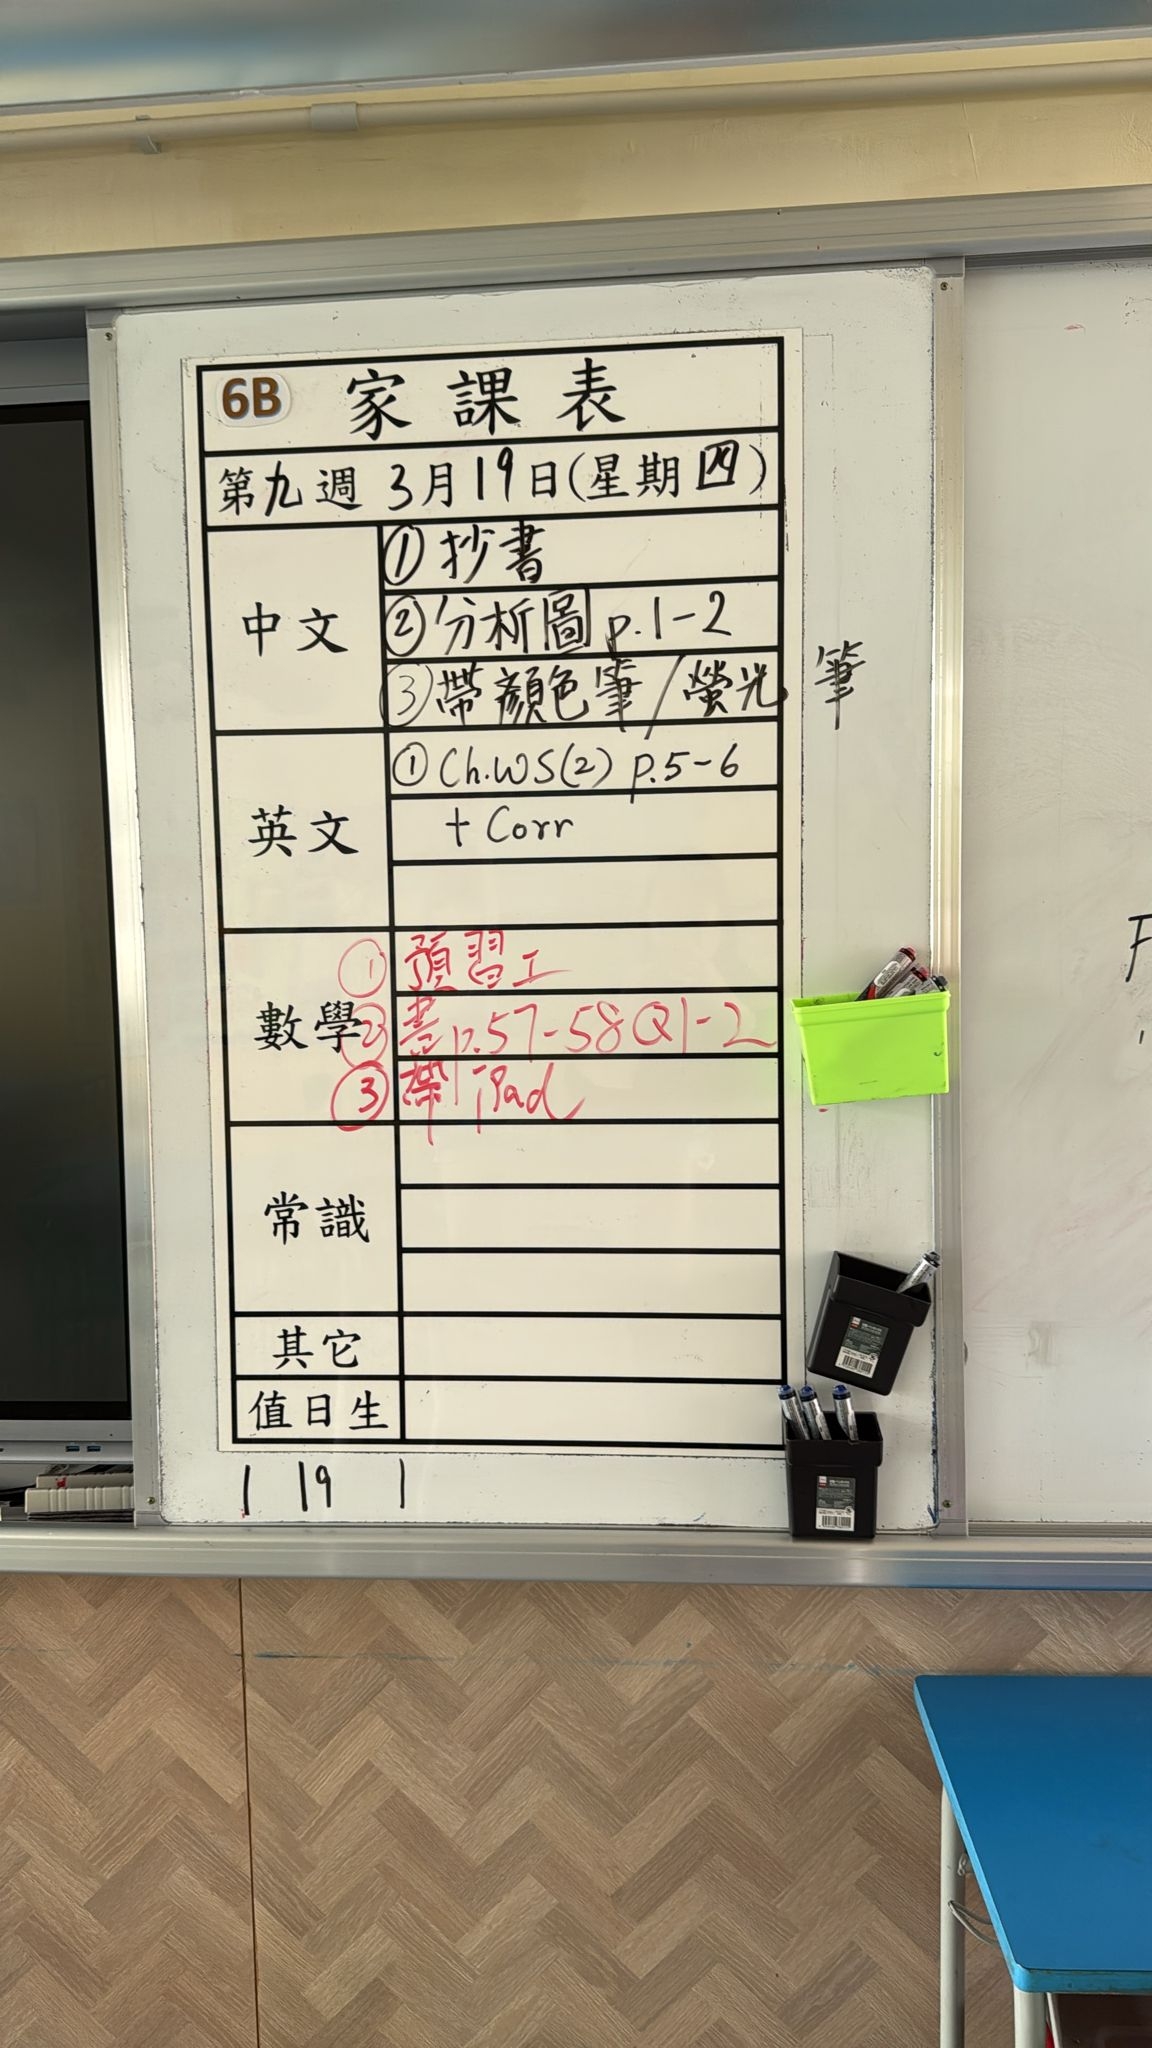 6B 家課表
第九週 3月19日(星期四)
中文
① 抄書
② 分析圖 p.1-2
③ 帶顏色筆/螢光筆
英文
① Ch.WS(2) p.5-6
+ Corr
數學
① 預習工
② 書 p.57-58 Q1-2
③ 帶 iPad
常識
其它
值日生
1 19 1
F